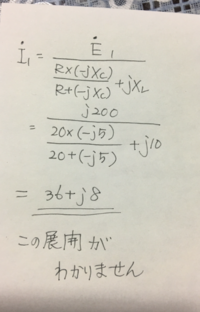 İ₁ = Ė₁ / (R×(-jXc) / R+(-jXc) + jX_L)
= j200 / (20×(-j5) / 20+(-j5) + j10)
= 36+j8
この展開が
わかりません